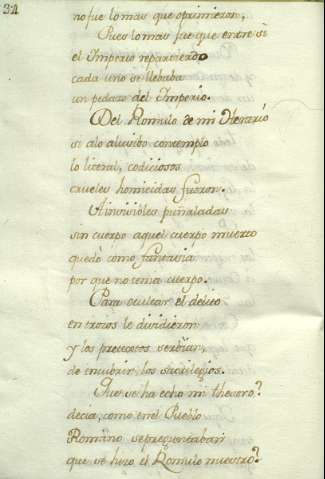 32
no fue lo mas que oprimieron,
Pues lo mas fue que entre sì
el Imperio repartiendo
cada uno se llebaba
un pedazo del Imperio.
Del Romulo de mi Therario
si alo aluido contemplo
lo literal, codiciosos
crueles homicidas fueron.
Ainvisibles puñaladas
sin cuerpo aquel cuerpo muerto
quedò como fantasia
por que no tenia cuerpo.
Para ocultar el delito
en trozos le dividieron
y los pretextos serbian,
de encubrir los sacrilegios.
Que se ha echo mi thesoro?
decia, como en el Pueblo
Romano se preguntaban
que se hizo el Romulo nuestro?